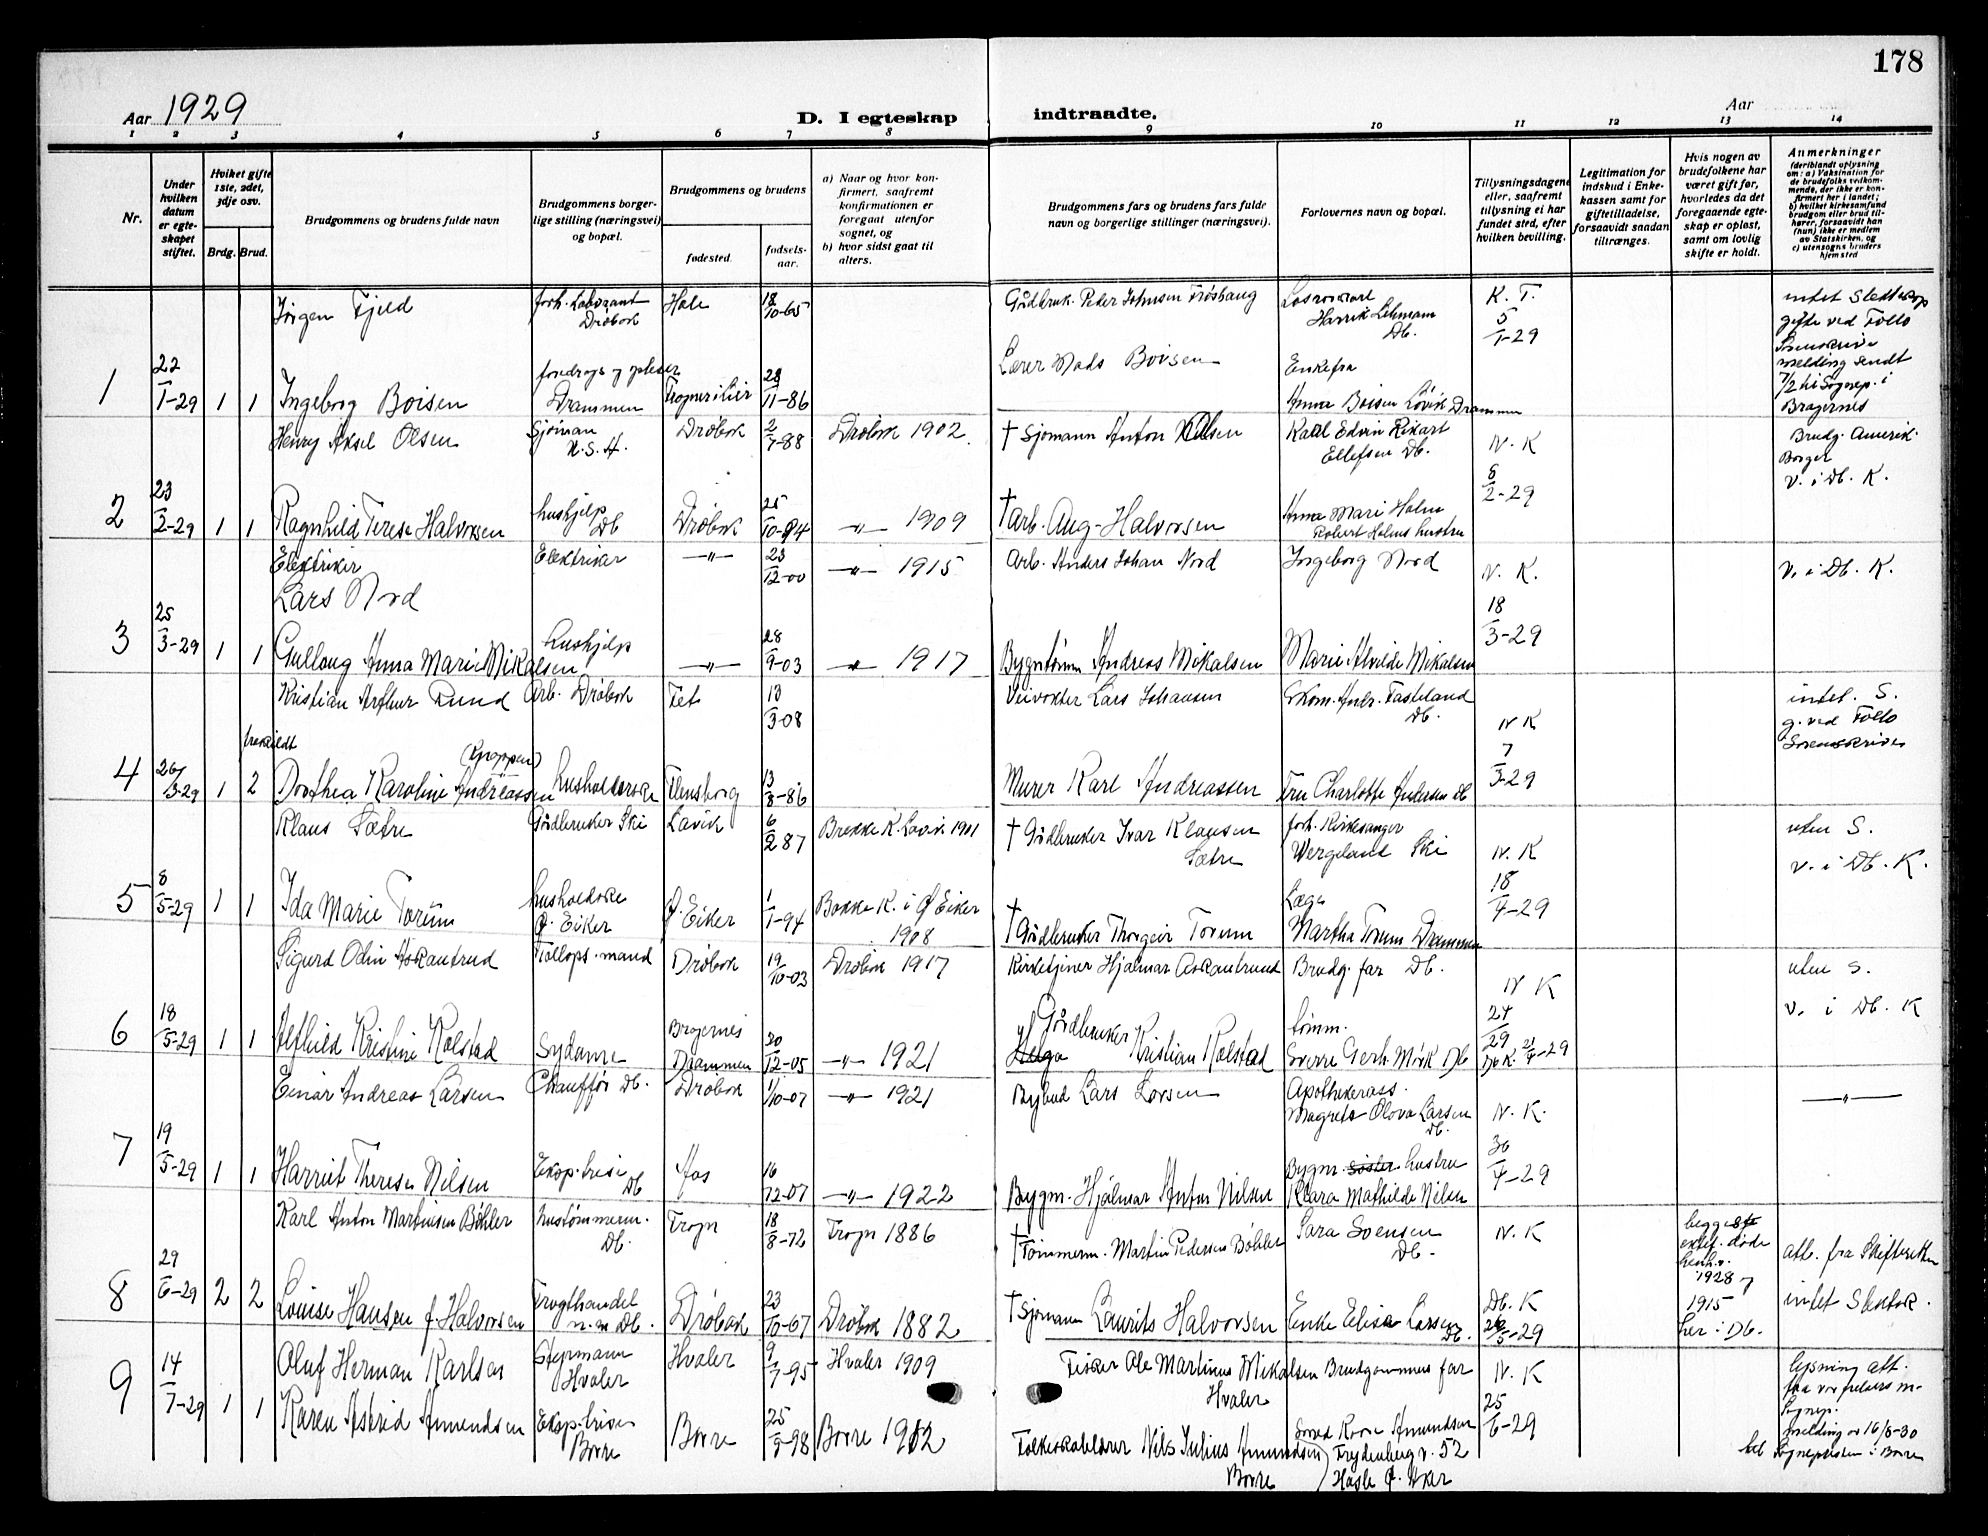 178
Aar 1929
D. I egteskap
indtraadte.
Aar
1 2 3 4 5 6 7 8 9 10 11 12 13 14
Nr.
Under hvilken datum er egteskapet stiftet.
Hviket gifte 1ste, 2det, 3dje osv.
Brdg. Brud.
Brudgommens og brudens fulde navn
Brudgommens borgerlige stilling (næringsvei) og bopæl.
Brudgommens og brudens
fødested.
fødselsaar.
a) Naar og hvor konfirmert, saafremt konfirmationen er foregaat utenfor sognet, og
b) hvor sidst gaat til alters.
Brudgommens fars og brudens fars fulde navn og borgerlige stillinger (næringsvei).
Forlovernes navn og bopæl.
Tillysningsdagene eller, saafremt tillysning ei har fundet sted, efter hvilken bevilling.
Legitimation for indskud i Enkekassen samt for giftetilladelse, forsaavidt saadan tiltrænges.
Hvis nogen av brudefolkene har været gift før, hvorledes da det foregaaende egteskap er opløst, samt om lovlig skifte er holdt.
Anmerkninger
(deriblandt oplysning om: a) Vaksination for de brudefolks vedkommende, der ikke er konfirmert her i landet; b) hvilket kirkesamfund brudgom eller brud tilhører, forsaavidt han (hun) ikke er medlem av Statskirken, og c) utensogns bruders hjemsted
Jørgen Fjeld forh. Laborant Drøbak Hole 18/10-65 Gårdbruk. Peter Johnsen Henrik Lehmann Db. K. T. 5/1-29 intet Slektskap gifte ved Follo Sorenskriver
1 22/1-29 1 1 Ingeborg Boisen Drammen 28/11-86 Lærer Mads Boisen Enkefru Anna Boisen Løvik Drammen melding sendt 7/2 til Sognep. i Bragernes
Henry Aksel Olsen Sjømann U.S.A. Drøbak 2/7-88 Drøbak 1902 † Sjømann Anton Olsen Karl Edvin Rikart Ellefsen Db. N. K Brudg. Amerik. Borger v. i Db. K.
2 23/2-29 1 1 Ragnhild Terese Halvorsen hushjelp Db Drøbak 25/10-94 —"— 1909 † arb. Aug. Halvorsen Anna Mari Holm Robert Holms hustru 8/2-29
Elektriker Lars Nord Elektriker —"— 23/12-00 —"— 1915 Arb. Anders Johan Nord Ingeborg Nord N. K. v. i Db. K.
3 25/3-29 1 1 Gullaug Anna Marie Mikalsen hushjelp —"— 28/9-03 —"— 1917 Bygntømm Andreas Mikalsen Marie Alvilde Mikalsen 18/3-29
Kristian Arthur Rund Arb. Drøbak Fet 13/3-08 Veivokter Lars Johansen Db. N K intet. S. g. ved Follo Sorenskriver
4 26/3-29 1 fraskildt 2 Dorthea Karoline Andreassen husholderske Flensborg 13/8-86 Murer Karl Andreassen Fru Charlotte Andersen Db 7/3-29
Klaus Sætre Gårdbruker Ski Lavik 6/2 87 Brekke K. Lavik 1901 † Gårdbruker Ivar Klausen Sætre forh. Kirkesanger Wergeland Ski N. K uten S. v. i Db. K.
5 8/5-29 1 1 Ida Marie Torüm husholdske Ø. Eiker Ø. Eiker 1/1-94 Bakke K. i Ø Eiker 1908 † Gårdbruker Thorgeir Torum Læge Martha Torum Drammen 18/4-29
Sigurd Odin Askautrud Tollops.mand Drøbak 19/10-03 Drøbak 1917 Kirketjener Hjalmar Askautrud Brudg. far Db. N K uten S. v. i Db. K
6 18/5-29 1 1 Alfhild Kristine Kolstad Sydame Bragernes Drammen 30/12-05 —"— 1921 Gårdbruker Helga Kristian Kolstad tømm. Sverre Gerh. Mørk Db 24/29 Db K. 21/4-29
Einar Andreas Larsen Chauffør Db. Drøbak 1/10-07 —"— 1921 Bybud Lars Larsen Apothekerass. Magreta Olava Larsen Db. N. K. —"—
7 19/5-29 1 1 Harriet Therese Nilsen Eksp.trise Db Aas 16/12-07 —"— 1922 Bygm. Hjalmar Anton Nilsen Bygm. Søster hustru Klara Mathilde Nilsen 30/4-29
Karl Anton Martinsen Bøhler hustømmerm. Db. Frogn 18/8-72 Frogn 1886 † Tømmerm. Martin Pedersen Bøhler Sara Svensen Db. N. K begge ektef. døde henh.v. 1928 7 att. fra Skifteretten
8 29/6-29 2 2 Louise Hansen f. Halvorsen Frugthandel Db. Drøbak 23/10-67 Drøbak 1882 † Sjømann Laurits Halvorsen Enke Elisa Larsen Db. Db. K 26/5-29 1915 her i Db. intet Slektsk.
Oluf Herman Karlsen Styrmann Hvaler Hvaler 9/7-95 Hvaler 1909 Fisker Ole Martinus Mikalsen Hvaler Brudgommens far N. K lysning att. fra sognep.
9 14/7-29 1 1 Karen Astrid Amundsen Eksp.trise Borre Borre 25/9-98 Borre 1912 Folkeskolelærer Nils Julius Amundsen Borre Amundsen Frydenberg v. 52 Hasle Ø. Aker 25/6-29 melding av 16/8-30 til Sognepresten i Borre